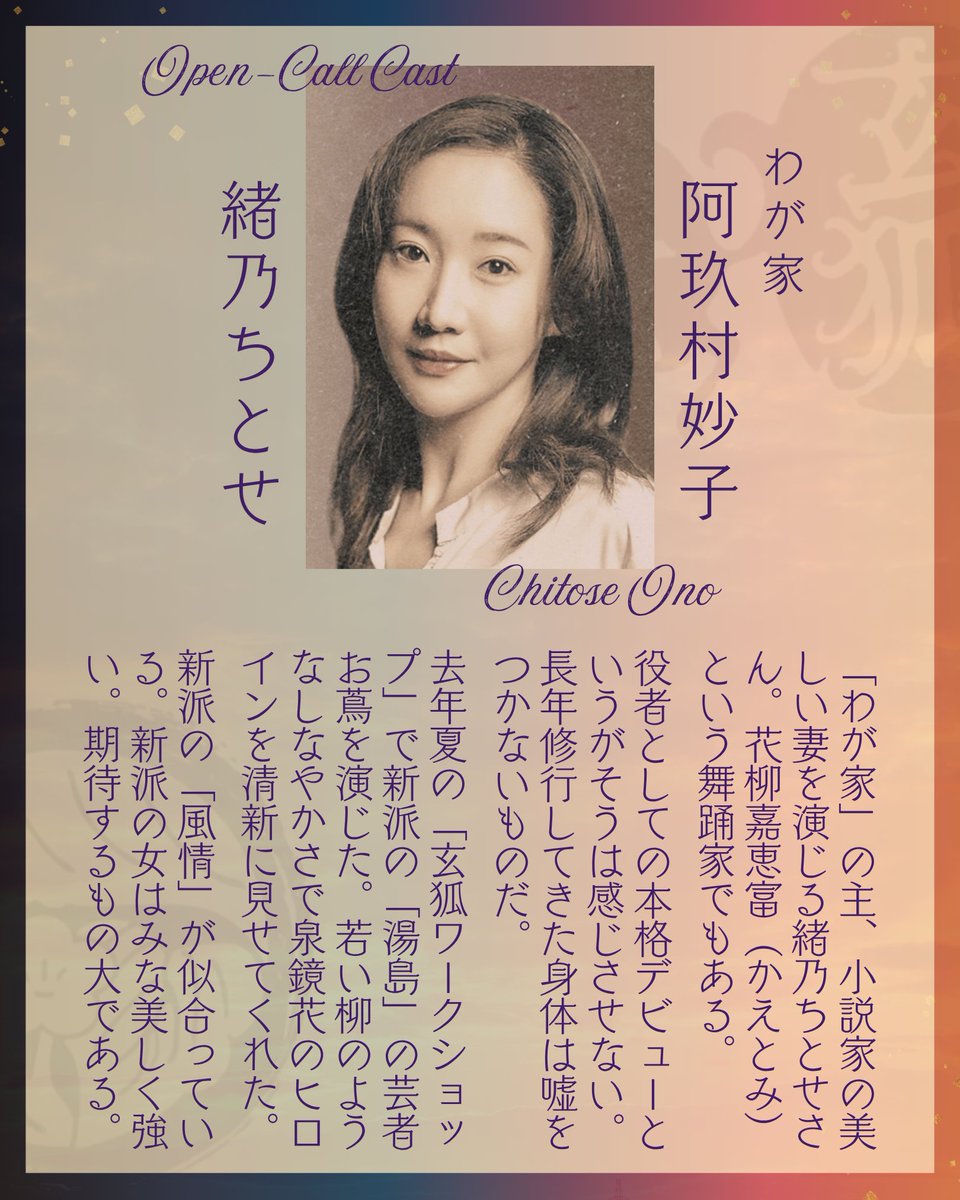 Open-Call Cast
わが家
阿玖村妙子
緒乃ちとせ
Chitose Ono
「わが家」の主、小説家の美
しい妻を演じる緒乃ちとせさ
ん。花柳嘉恵富（かえとみ）
という舞踊家でもある。
役者としての本格デビューと
いうがそうは感じさせない。
長年修行してきた身体は嘘を
つかないものだ。
去年夏の「玄狐ワークショッ
プ」で新派の「湯島」の芸者
お蔦を演じた。若い柳のよう
なしなやかさで泉鏡花のヒロ
インを清新に見せてくれた。
新派の「風情」が似合ってい
る。新派の女はみな美しく強
い。期待するもの大である。